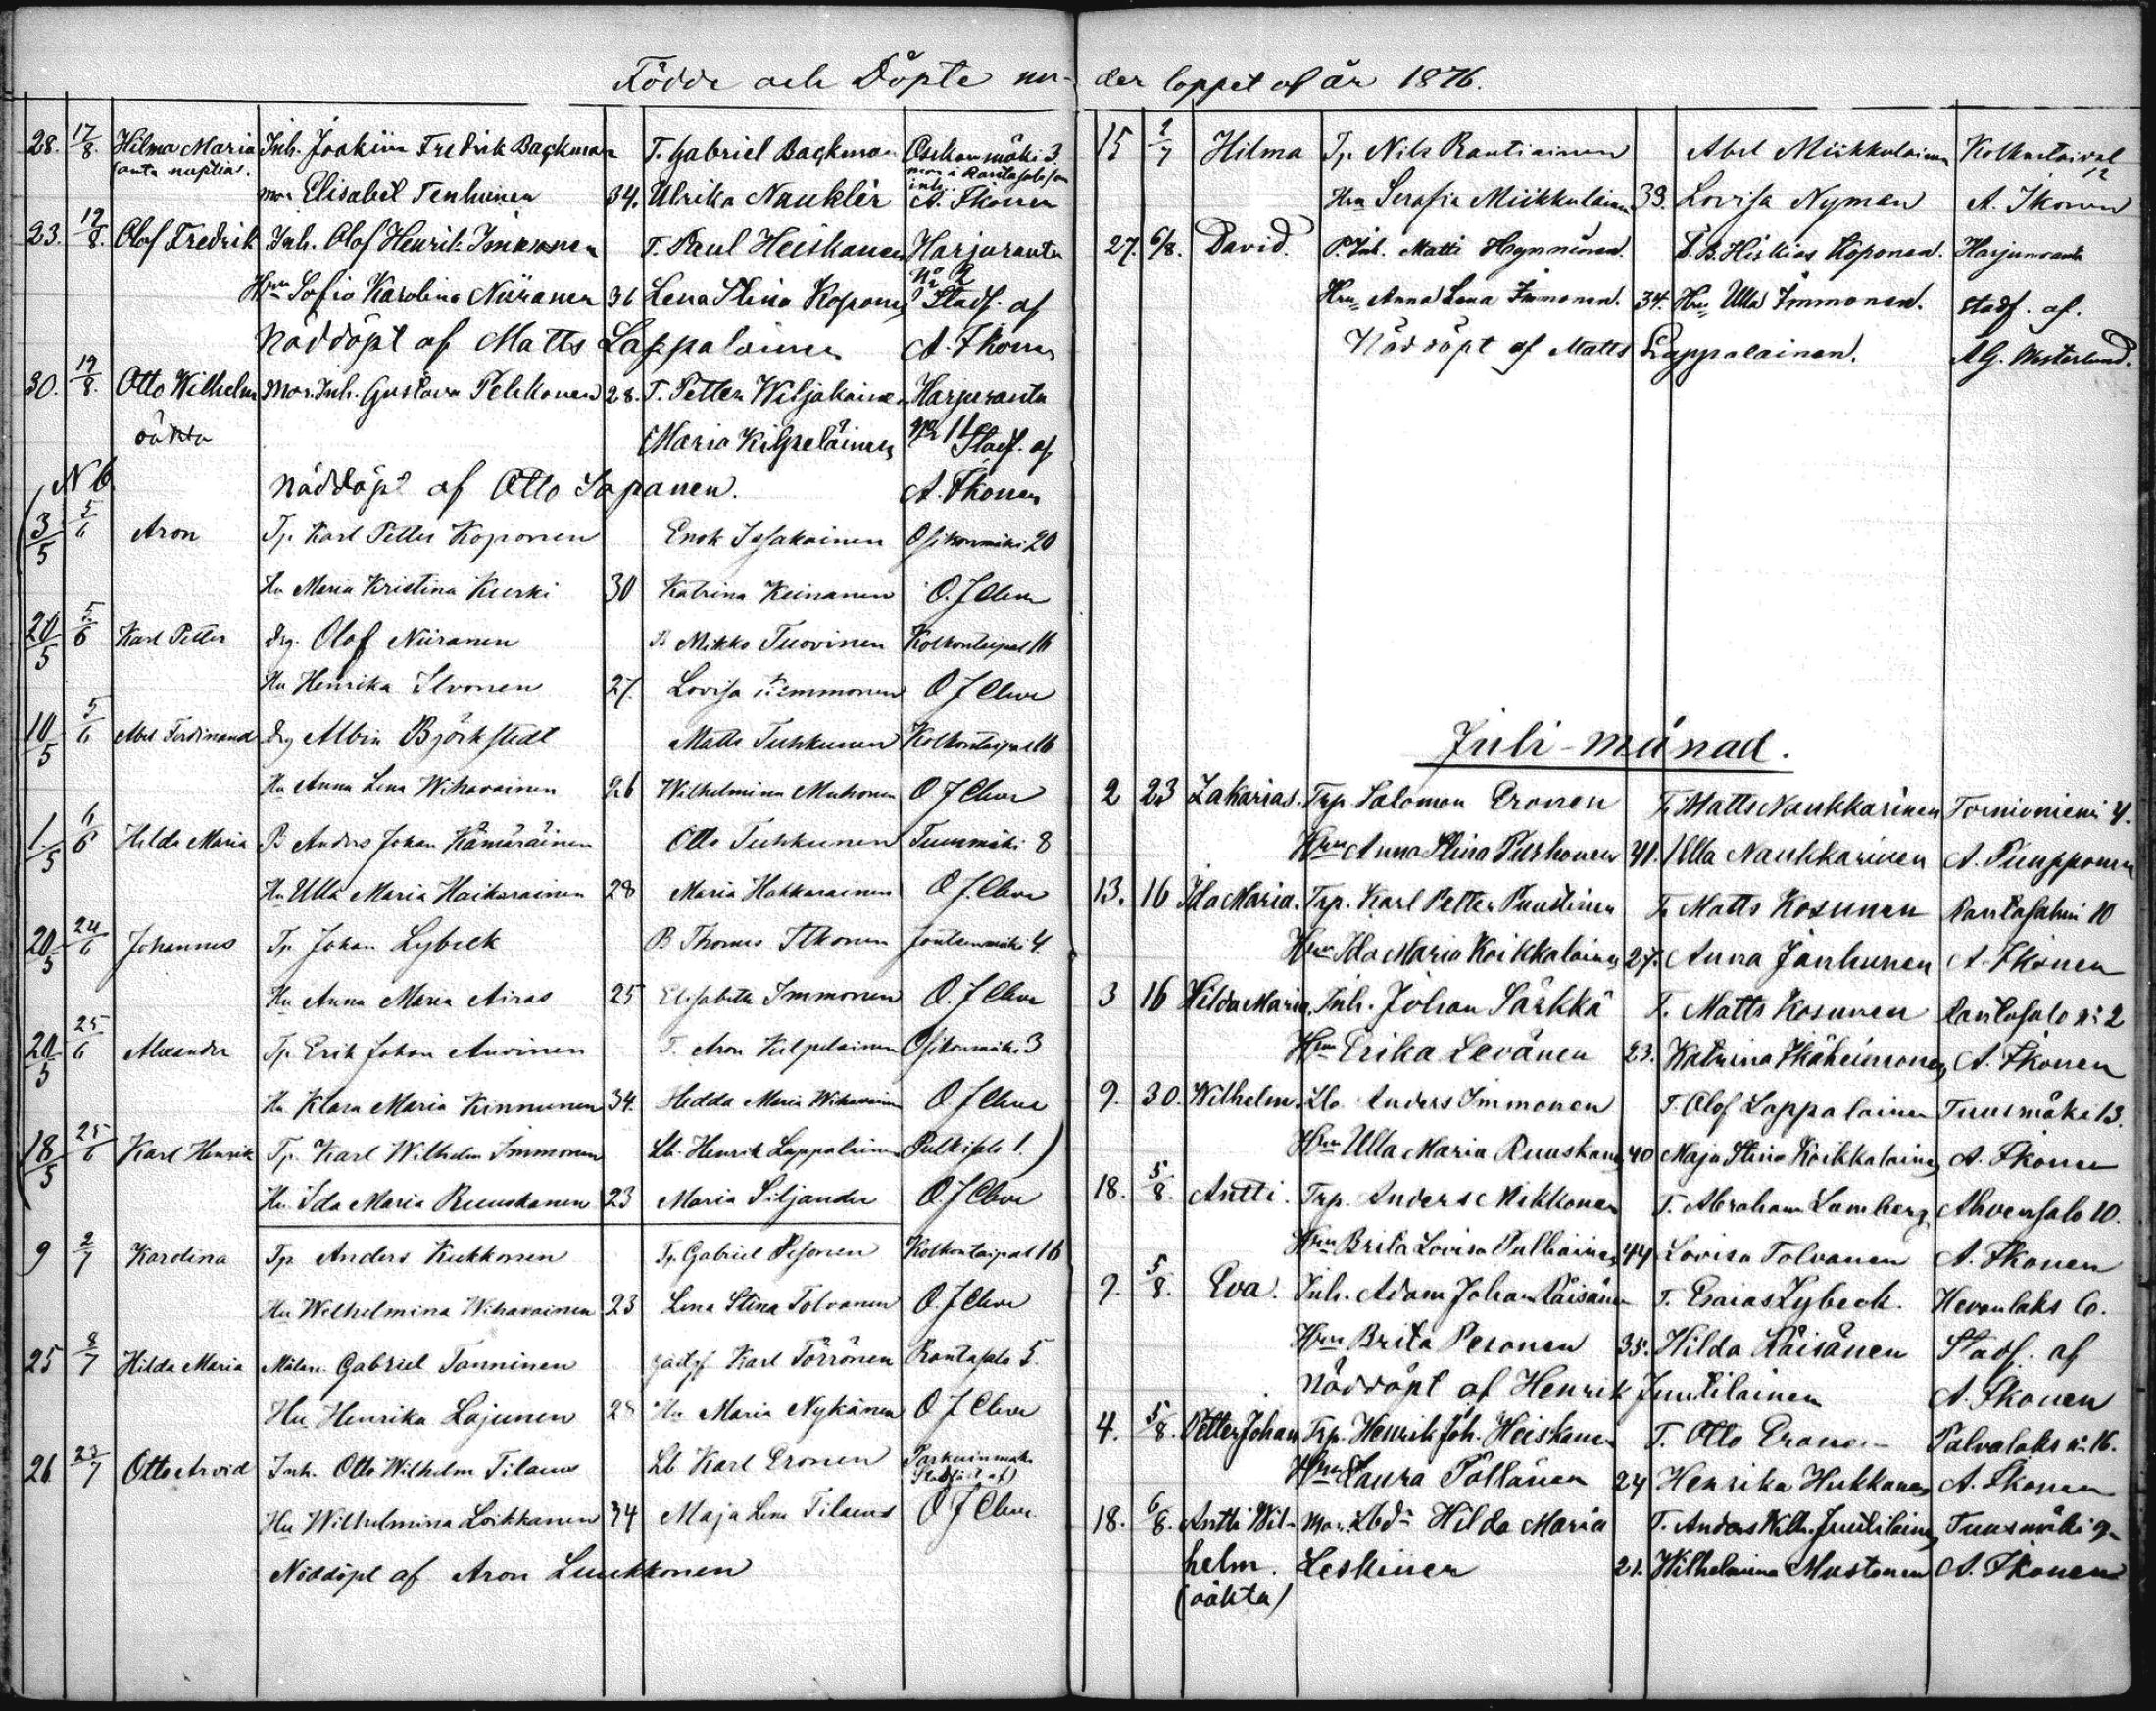 Födde och Döpte un-
28. 17/8. Hilma Maria Inh. Joakim Fredrik Backman T. Gabriel Backman Osikonmäki 3.
(ante nuptias. mor i Rantasalo
mor Elisabet Tenhunen 34. Ulrika Naukler A. Ikonen
23. 19/8. Olof Fredrik Inh. Olof Henrik Immonen T. Paul Heiskanen Harjuranta
Hru Sofia Karolina Niiranen 36 Lena Stina Koponen No 9 Stadf. af
Nöddöpt af Matts Lappalainen A. Ikonen
30. 19/8. Otto Wilhelm Mor. Inh. Gustava Pelkonen 28. T. Petter Wiljakainen Harjuranta
oäkta Maria Kilpeläinen No 11 Stadf. af
Nb nöddöpt af Otto Saponen. A. Ikonen
3/5 5/6 Aron Tp Karl Petter Koponen Enok Issakainen Osikonmäki 20
Hu Maria Kristina Kurki 30 Katrina Keinanen O. J Cleve
20/5 5/6 Karl Petter Drg. Olof Niiranen B Mikko Tuovinen Kolkontaipal 16
Hu Henrika Ilvonen 27. Lovisa Kemmonen O J Cleve
10/5 5/6 Abel Ferdinand Drg Albin Björkstedt Matts Tuhkunen Kolkontaipal 16
Hu Anna Lena Wihavainen 26 Wilhelmina Muhonen O J Cleve
1/5 6/6 Hilda Maria B Anders Johan Hämäräinen Otto Tuhkunen Tuusmäki 8
Hu Ulla Maria Haikarainen 28 Maria Hakkarainen O J. Cleve
20/5 24/6 Johannes Tp Johan Lybeck B Thomas Ilkonen Joutsenmäki 4.
Hu Anna Maria Airas 25 Elisabeth Immonen O. J Cleve
20/5 25/6 Alexander Tp Erik Johan Auvinen T. Aron Kilpelainen Osikonmäki 3
Hu Klara Maria Kinnunen 34. Hedda Maria Wihavainen O J Cleve
18/5 25/6 Karl Henrik Tp. Karl Wilhelm Immonen Lb. Henrik Lappalainen Putkisalo 1.)
Hu. Ida Maria Ruuskanen 23 Maria Siljander O. J Cleve
9 2/7 Kardina Tp Anders Kukkonen Tp Gabriel Pesonen Kolkontaipal 16
Hu Wilhelmina Wihavainen 23 Lena Stina Tolvanen O. J Cleve
25 8/7 Hilda Maria Målare Gabriel Tanninen Karl Törrönen Rantasalo 5
Hu Henrika Lajunen 28 Hu Maria Nykänen O J Cleve
26 23/7 Otto Arvid Inh. Otto Wilhelm Tilaeus Lb Karl Eronen Parkuinmäk
Hu Wilhelmina Loikkanen 34 Maja Lena Tilaeus O J Cleve.
Nöddöpt af Aron Luukkonen
der loppet af år 1876.
15 2/7 Hilma Tp. Nils Rautiainen Abel Miikkulainen Kolkontaival 12
Hru Serafia Miikkulainen 33. Lovisa Nyman A. Ikonen
27. 6/8. David. P. Inh. Matti Hynninen. T. B. Hiskias Koponen. Harjuranta
Hru Anna Lena Immonen. 34. Hru Ulla Immonen. stadf. af.
Nöddöpt af Matts Lappalainen. A G. Westerlund.
Juli-månad.
2 23 Zakarias. Trp. Salomon Eronen T. Matts Naukkarinen Tornioniemi 4.
Hru Anna Stina Purhonen 41. Ulla Naukkarinen A. Pumpponen
13. 16 Ida Maria. Trp. Karl Petter Puustinen T. Matts Kosunen Rantasalmi 10
Hru Ida Maria Koikkalainen 27. Anna Jänhunen A. Ikonen
3 16 Hilda Maria. Inh. Johan Särkkä T. Matts Kosunen Rantasalo No 2
Hru Erika Levänen 23. Katrina Ikäheimonen A. Ikonen
9. 30. Wilhelm. Lb. Anders Immonen T. Olof Lappalainen Tuusmäki 13.
Hru Ulla Maria Ruuskanen 40 Maja Stina Koikkalainen A. Ikonen
18. 5/8. Antti. Trp. Anders Miikkonen T. Abraham Lumberg Ahvensalo 10.
Hru Brita Lovisa Pulliainen 44 Lovisa Tolvanen A. Ikonen
7. 5/8. Eva. Inh. Adam Johan Räisänen T. Esaias Lybeck. Hevonlaks 6.
Hru Brita Pesonen 35. Hilda Räisänen Stadf. af
Nöddöpt af Henrik Juutilainen A. Ikonen
4. 5/8. Petter Johan Trp. Henrik Joh. Heiskanen T. Otto Eronen Palvalaks No 16.
Hru Laura Pöllänen 24 Henrika Hukkanen A. Ikonen
18. 6/8. Antti Wil- Mor. Lbdr Hilda Maria T. Anders Wilh. Juutilainen Tuusmäki 9
helm. Leskinen 21. Wilhelmina Mustonen A. Ikonen
(oäkta)